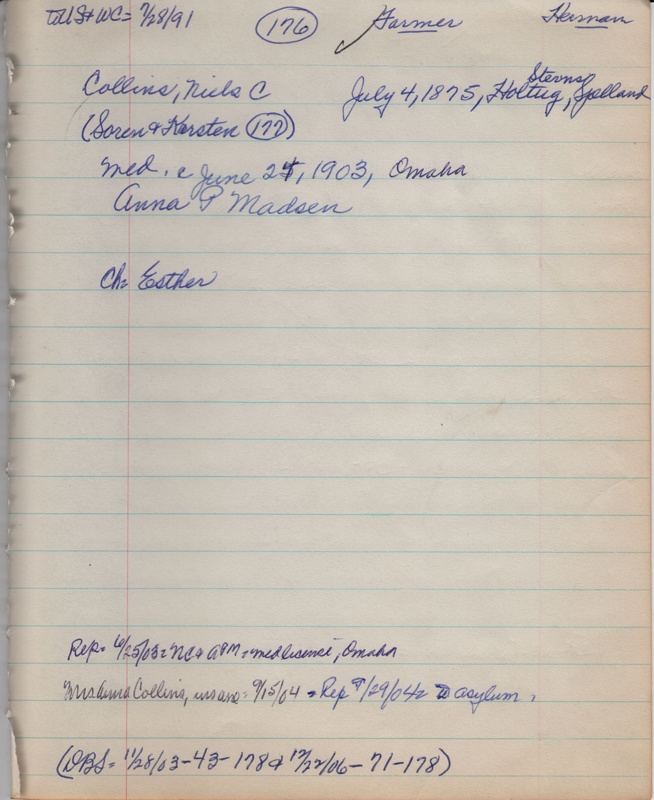 till St WC= 7/28/91 176 Farmer Herman
Collins, Niels C July 4, 1875, Holtug, Stevns, Sjelland
(Soren & Karsten 177)
med. c June 24, 1903, Omaha
Anna P Madsen
Ch= Esther
Rep= 6/25/03= NC & APM= med lisence, Omaha
Mrs Anna Collins, insane= 9/15/04 = Rep 9/29/04= to asylum.
(DBS= 11/28/03-43-178 & 12/22/06-71-178)